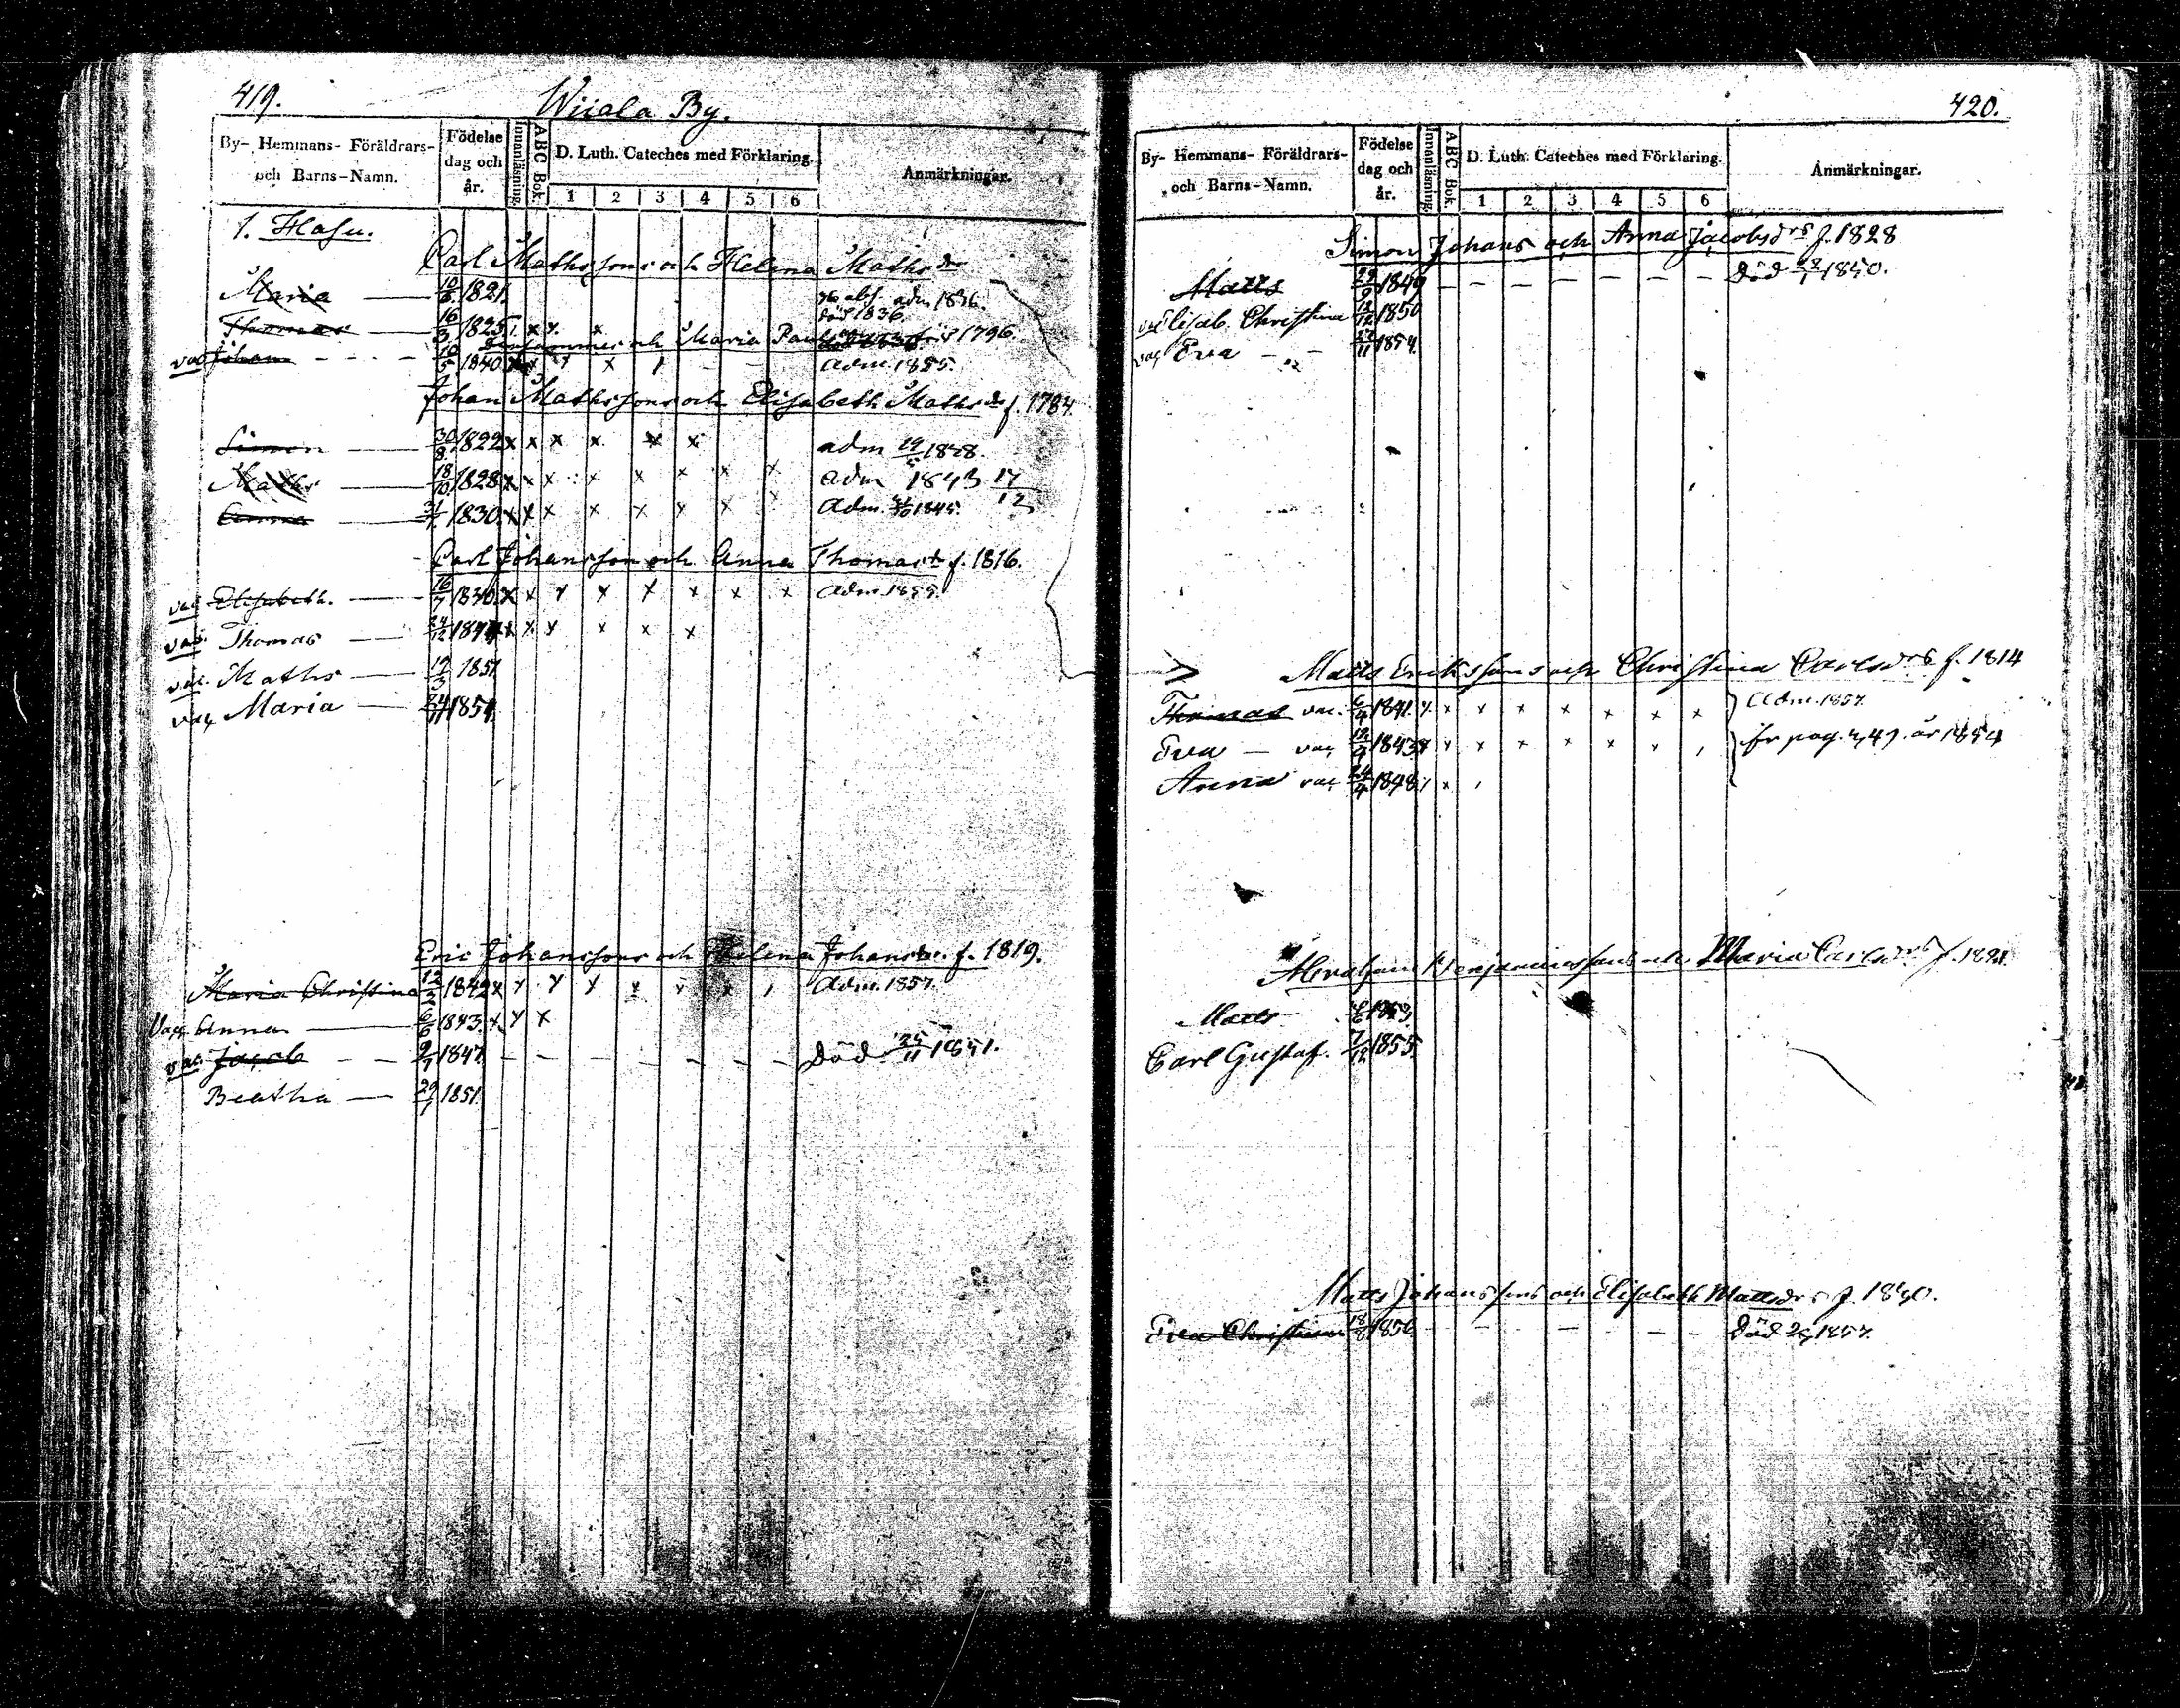 419.
Wiiala By.
By- Hemmans- Föräldrars- och Barns-Namn.
Födelse dag och år.
Innanläsning.
ABC Bok.
D. Luth. Cateches med Förklaring.
1 2 3 4 5 6
Anmärkningar.
1. Hasu.
Carl Mathssons och Helena Mathsdr
Maria 10/8 1821. adm 1836.
död 1836
Thomas 16/3 1825 x x x
densammes och Maria 1796.
vac Johan 10/5 1840 x x x x adm. 1855.
Johan Mathssons och Elisabeth Mathsdr f. 1784
Simon 30/8 1822 x x x x x x adm 1838.
Maths 18/10 1828 x x x x x x x x adm 1843 17/12
Anna 31/1 1830 x x x x x x x x Adm. 1845.
Carl Johansson och Anna Thomasdr f. 1816.
vac Elisabeth. 16/7 1840. x x x x x x x x Adm. 1855.
vac. Thomas 24/12 184 x x x x x x
vac. Maths 19/3 1851
vac Maria 24/11 1854.
Eric Johanssons och Helena Johansdr. f. 1819.
Maria Christina 12/3 1842 x x x x x x x Adm. 1857.
Vac Anna 6/6 1843. x x x
vac. Jacob 9/7 1847. Död 25/11 1851.
Beatha 29/1 1851.
420.
By- Hemmans- Föräldrars- och Barns-Namn.
Födelse dag och år.
Innanläsning.
ABC Bok.
D. Luth. Cateches med Förklaring.
1 2 3 4 5 6
Anmärkningar.
Simon Johans och Anna Jacobsdrs f. 1828
Matts 29/9 1849 Död 1850.
vac Elisab. Christina 12/12 1850
vac Eva 27/11 1854.
Matts Erikssons och Christina Carlsdrs f. 1814
Thomas vac. 6/4 1841. x x x x x x x x Adm. 1857.
Eva vac 12/9 1843 x x x x x x x fr pag. 449. år 1854
Anna vac 24/4 1848 x x
Abraham Benjaminssons och Maria Carlsdrs f. 1821.
Matts 1853,
Carl Gustaf. 7/12 1855.
Matts Johanssons och Elisabeth Mattsdrs f. 18
Eva Christina 18/8 1856 Död 1857.